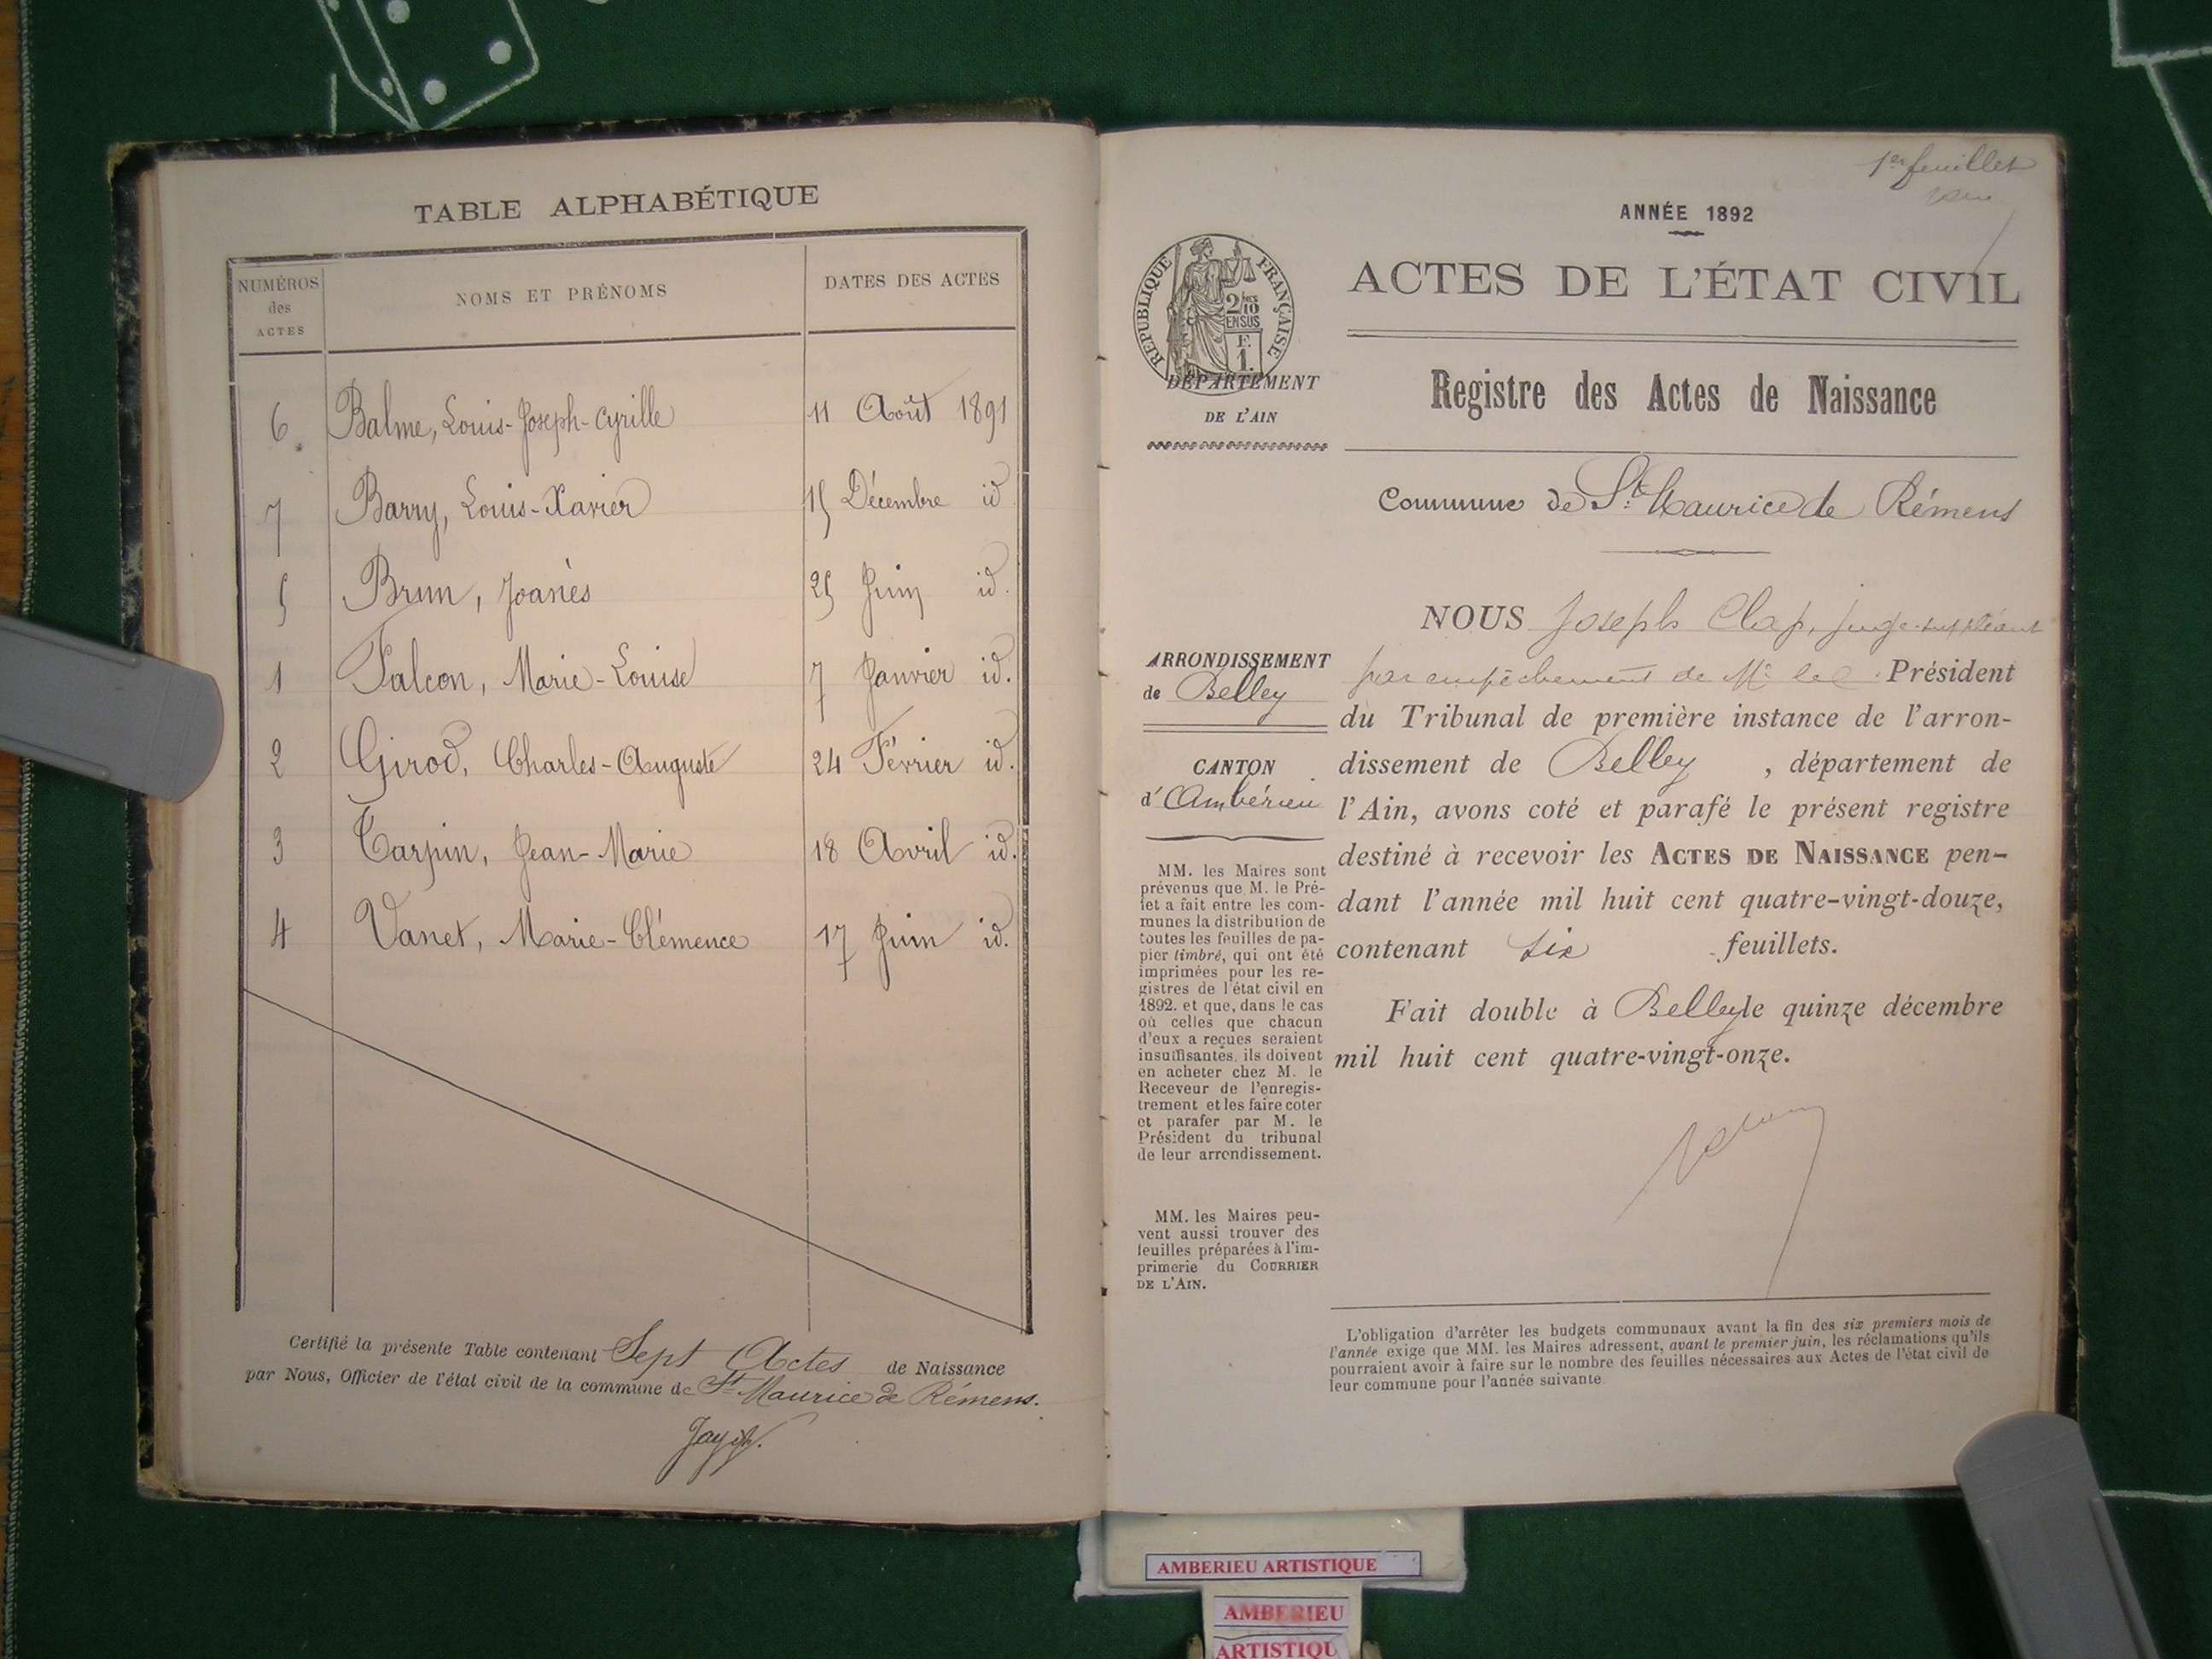 TABLE ALPHABÉTIQUE
NUMÉROS des ACTES
NOMS ET PRÉNOMS
DATES DES ACTES
6 Balme, Louis-Joseph-Cyrille 11 Août 1891
7 Barry, Louis-Xavier 15 Décembre id
5 Brun, Joanès 25 Juin id.
1 Falcon, Marie-Louise 7 Janvier id.
2 Girod, Charles-Auguste 24 Février id.
3 Tarpin, Jean-Marie 18 Avril id.
4 Vanet, Marie-Clémence 17 Juin id.
Certifié la présente Table contenant Sept Actes de Naissance
par Nous, Officier de l'état civil de la commune de St Maurice de Rémens.
1er feuillet
ANNÉE 1892
RÉPUBLIQUE FRANÇAISE
2/10
EN SUS
F.
1.
ACTES DE L'ÉTAT CIVIL
DÉPARTEMENT
DE L'AIN
Registre des Actes de Naissance
Commune de St. Maurice de Rémens
ARRONDISSEMENT
de Belley
CANTON
d'Ambérieu
MM. les Maires sont
prévenus que M. le Pré-
fet a fait entre les com-
munes la distribution de
toutes les feuilles de pa-
pier timbré, qui ont été
imprimées pour les re-
gistres de l'état civil en
1892. et que, dans le cas
où celles que chacun
d'eux a reçues seraient
insuffisantes, ils doivent
en acheter chez M. le
Receveur de l'enregis-
trement et les faire coter
et parafer par M. le
Président du tribunal
de leur arrondissement.
MM. les Maires peu-
vent aussi trouver des
feuilles préparées à l'im-
primerie du COURRIER
DE L'AIN.
NOUS Joseph Clap, juge suppléant
par empêchement de Mr le Président
du Tribunal de première instance de l'arron-
dissement de Belley, département de
l'Ain, avons coté et parafé le présent registre
destiné à recevoir les ACTES DE NAISSANCE pen-
dant l'année mil huit cent quatre-vingt-douze,
contenant six feuillets.
Fait double à Belley le quinze décembre
mil huit cent quatre-vingt-onze.
L'obligation d'arrêter les budgets communaux avant la fin des six premiers mois de
l'année exige que MM. les Maires adressent, avant le premier juin, les réclamations qu'ils
pourraient avoir à faire sur le nombre des feuilles nécessaires aux Actes de l'état civil de
leur commune pour l'année suivante
AMBERIEU ARTISTIQUE
AMBERIEU
ARTISTIQU